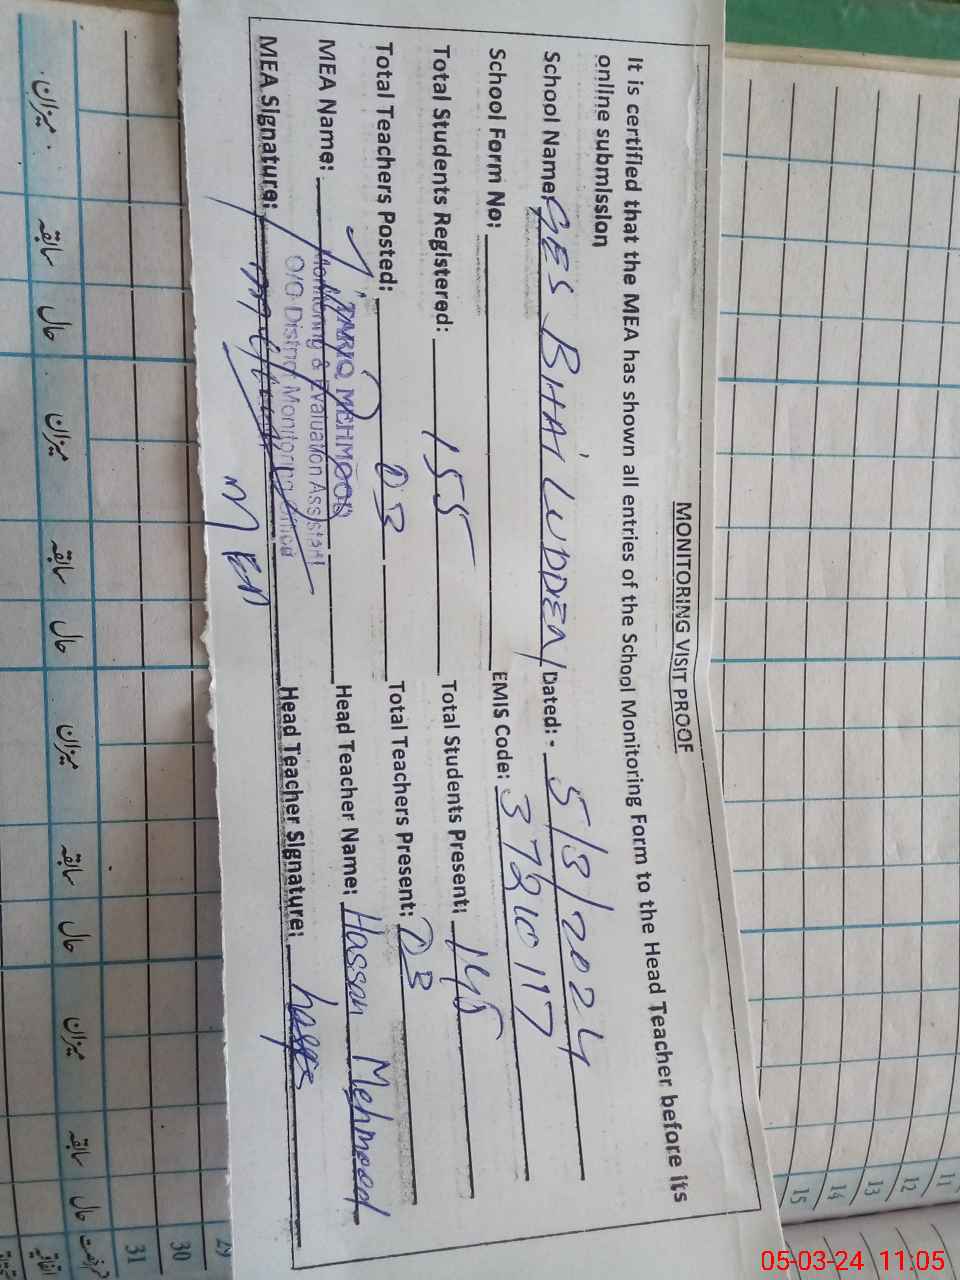 MONITORING VISIT PROOF
It is certified that the MEA has shown all entries of the School Monitoring Form to the Head Teacher before its
online submission
School Name: GES BHAI LUDDEN Dated: - 5/3/2024
School Form No: EMIS Code: 37210117
Total Students Registered: 155 Total Students Present: 145
Total Teachers Posted: 03 Total Teachers Present: 03
MEA Name: TARIQ MEHMOOD Head Teacher Name: Hassan Mehmood
Monitoring & Evaluation Assistant
O/O District Monitoring Office
MEA Signature: Head Teacher Signature:
MEA
11
12
13
14
15
29
30
31
میزان سابقہ حال میزان سابقہ حال میزان سابقہ حال میزان سابقہ حال
05-03-24 11:05